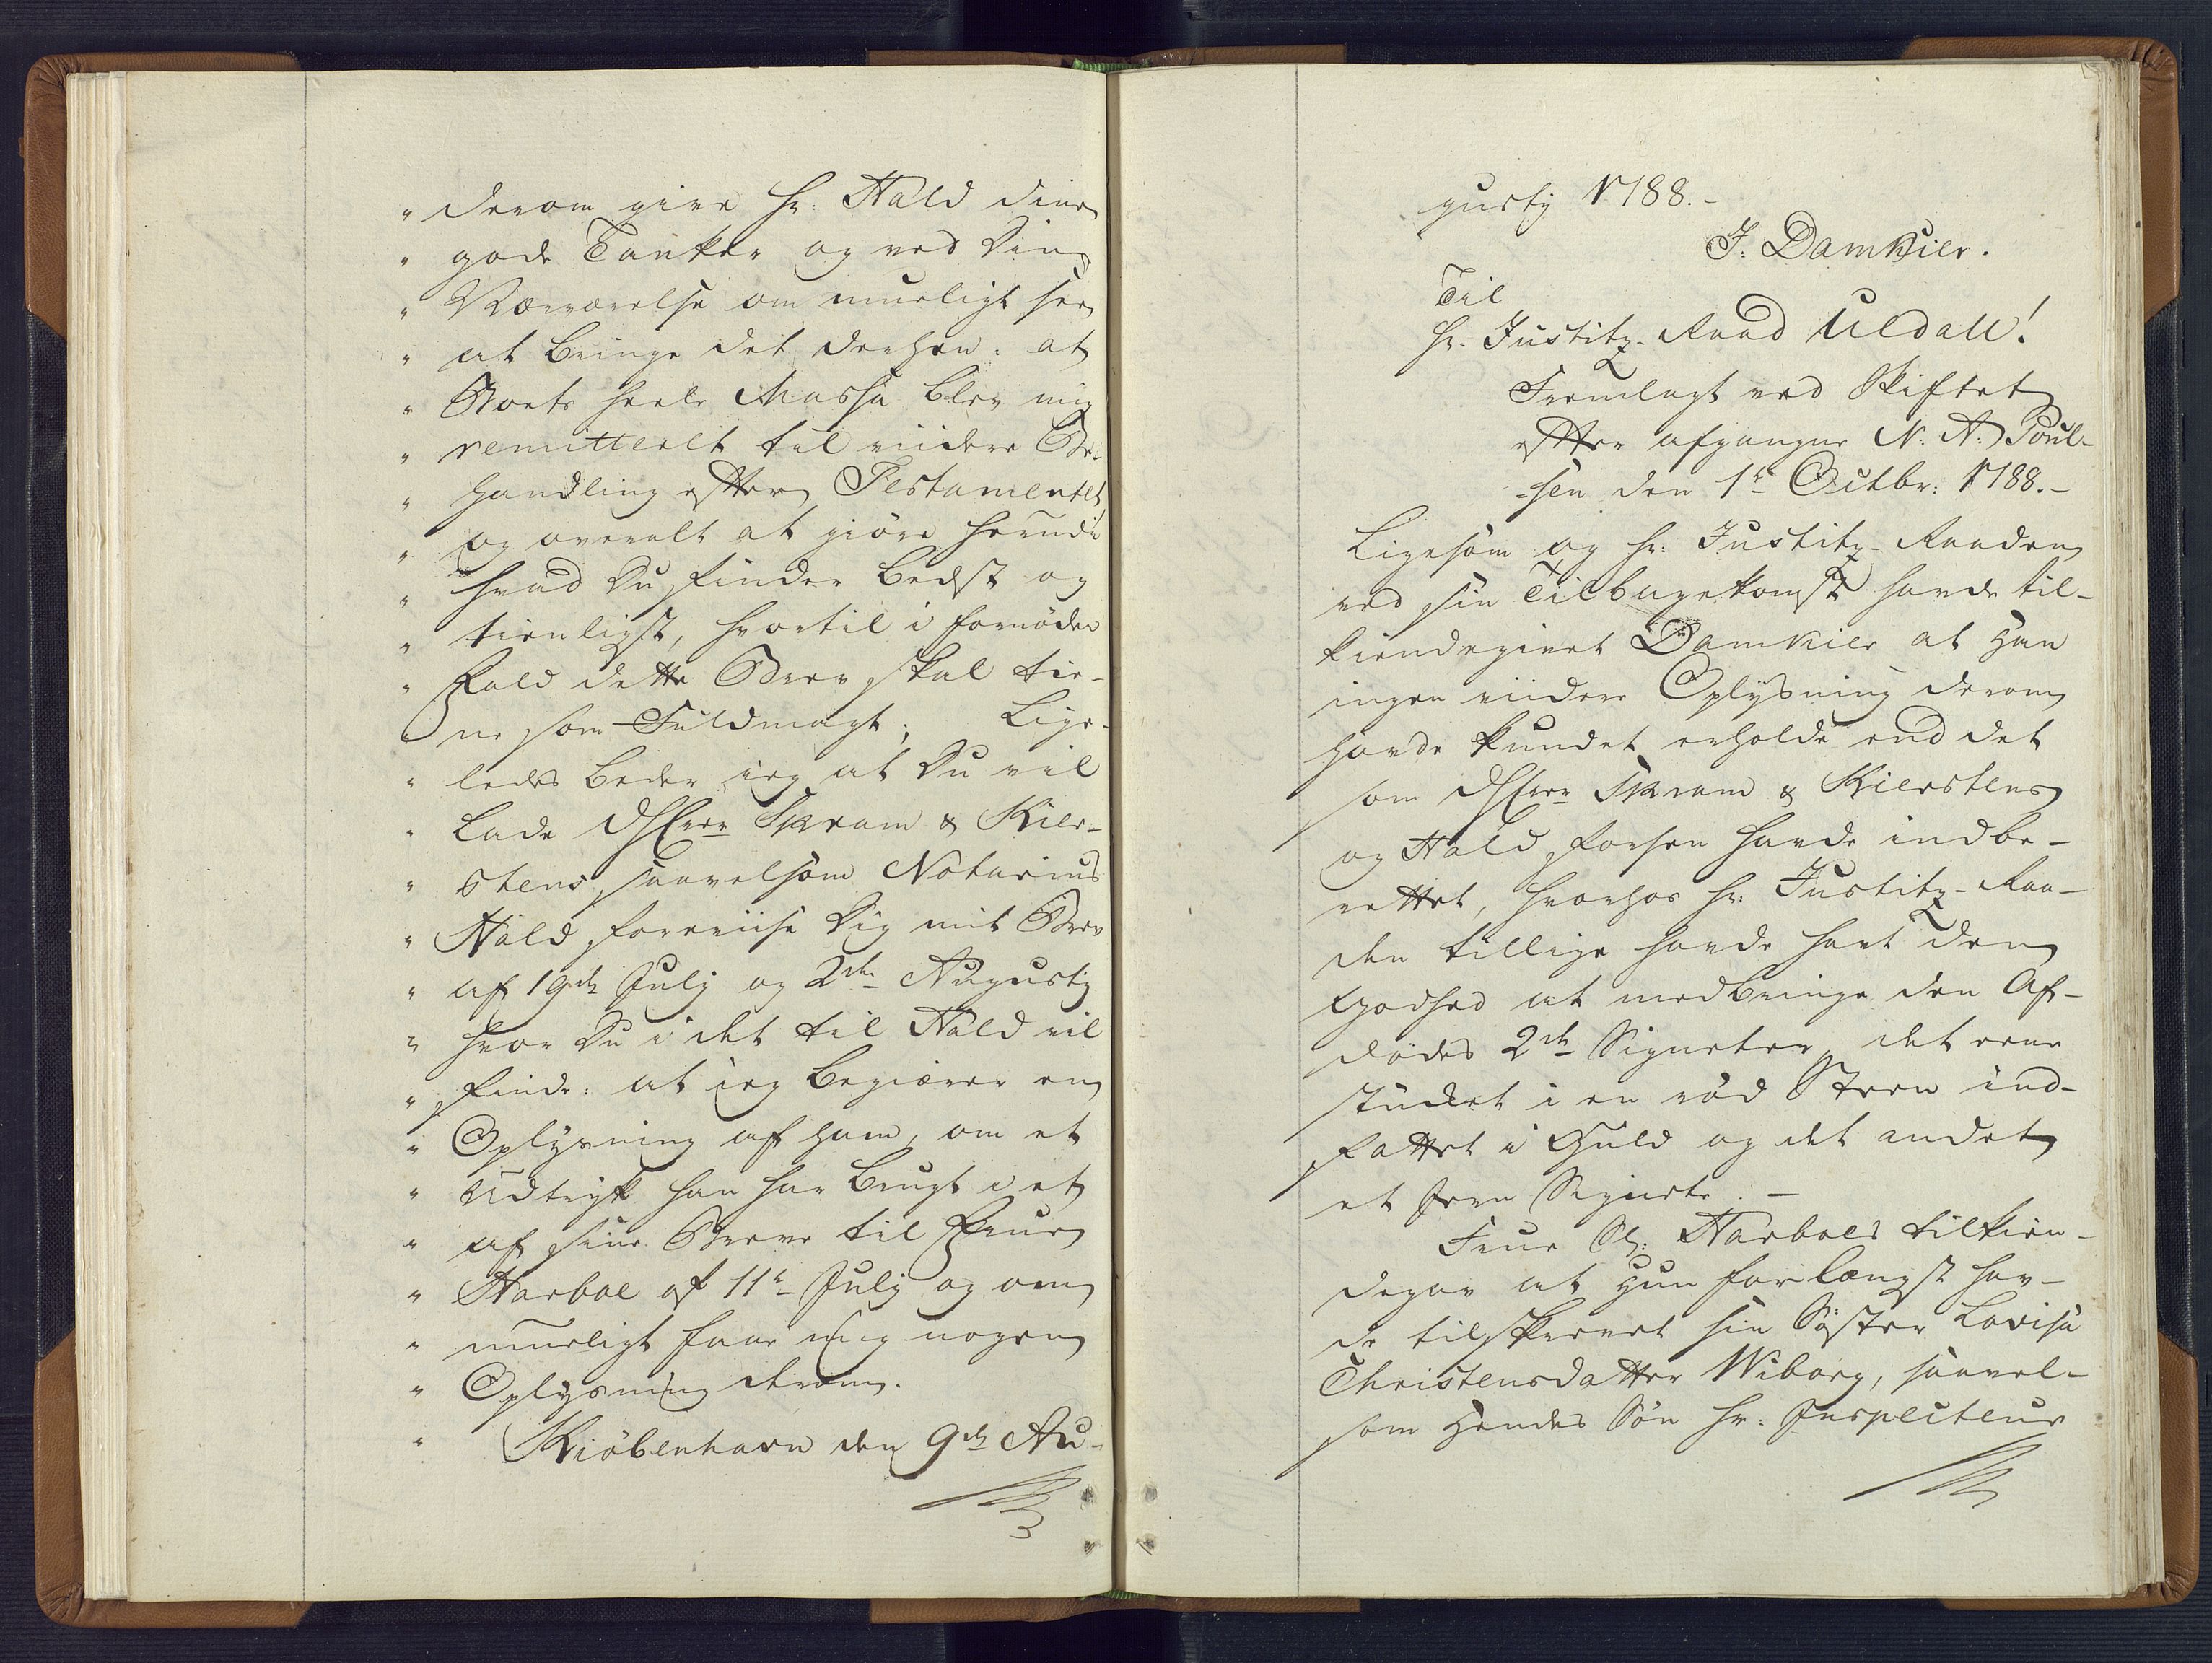 " derom give Hr: Hald dine
" gode Tanker og ved Din
" Nærværelse om mueligt see
" at bringe det derhen: at
" Boets heele Massa blev mig
" remitterlt til viidere Be-
" handling efter Testamentet,
" og overalt at giöre herudi
" hvad Du finder bedst og
" tienligst, hvortil i fornöden
" Fald dette Brev skal tie-
" ne som Fuldmagt; Lige-
" ledes beder ieg at Du vil
" lade DHerr Skram & Kier-
" stens, saavelsom Notarius
" Hald foreviise Dig mit Brev
" af 19de July og 2de Augusty
" hvor Du i det til Hald vil
" finde: at ieg begiærer en
" Oplysning af ham, om et
" Udtryk han har brugt i et
" af sine Breve til Frue
" Harboe af 11te July og om
" mueligt faae mig nogen
" Oplysning derom.
" Kiöbenhavn den 9de Au-
gusty 1788.-
J. Damkier.
Til
Hr. Justitz-Raad Uldall!
Fremlagt ved Skiftet
efter afgangne N: A: Poul-
-sen den 1te Octbr: 1788.-
Ligesom og Hr: Justitz-Raaden
ved sin Tilbagekomst havde til-
kiendegivet Damkier at han
ingen viidere Oplysning derom
havde kundet erholde end det
som DHerr Skram & Kierstens
og Hald forhen havde indbe-
rettet, hvorhos Hr: Justitz-Raa-
den tillige havde havt den
Godhed at medbringe den Af-
dödes 2de Signeter, det eene
stukket i en röd Steen ind-
fattet i Guld og det andet
et Jern Signete. -
Frue Harboes tilkien-
degav at hun forlængst hav-
de tilskrevet sin Söster Lovisa
Christensdatter Wiborg, saavel-
som hendes Sön Hr: Inspecteur